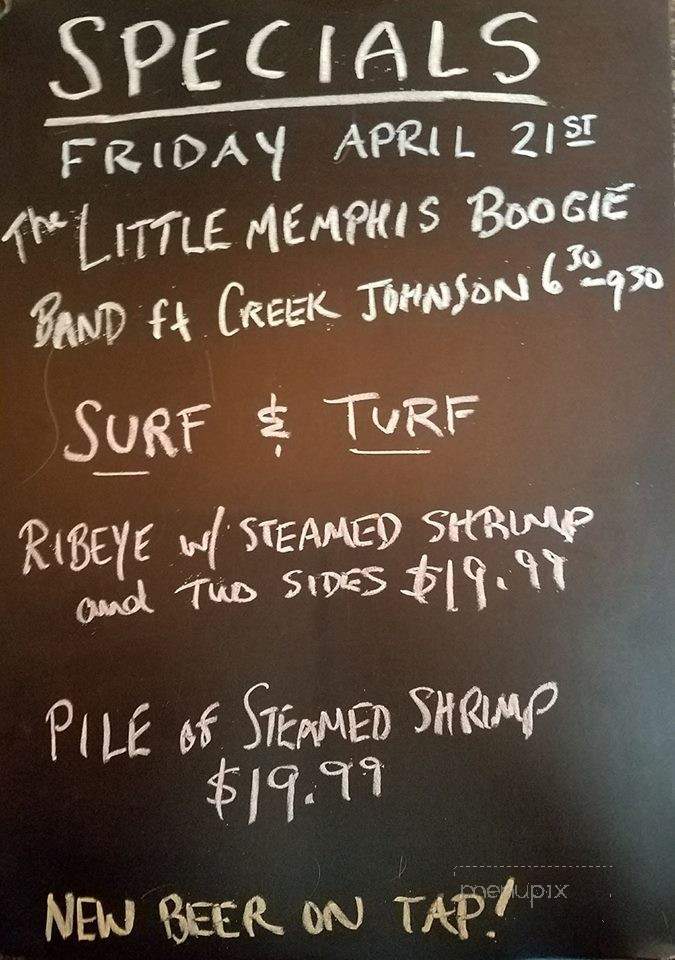 SPECIALS
FRIDAY APRIL 21ST
The LITTLE MEMPHIS BOOGIE
BAND ft CREEK JOHNSON 630-930
SURF & TURF
RIBEYE w/ STEAMED SHRIMP
and TWO SIDES $19.99
PILE OF STEAMED SHRIMP
$19.99
menupix
NEW BEER ON TAP!